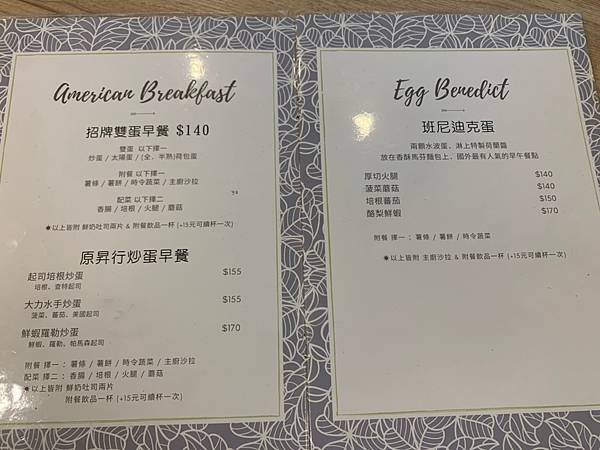 American Breakfast
招牌雙蛋早餐 $140
雙蛋 以下擇一
炒蛋 / 太陽蛋 / (全、半熟)荷包蛋
附餐 以下擇一
薯條 / 薯餅 / 時令蔬菜 / 主廚沙拉
配菜 以下擇二
香腸 / 培根 / 火腿 / 蘑菇
✱以上皆附 鮮奶吐司兩片 & 附餐飲品一杯 (+15元可續杯一次)
原昇行炒蛋早餐
起司培根炒蛋 $155
培根、查特起司
大力水手炒蛋 $155
菠菜、蕃茄、美國起司
鮮蝦羅勒炒蛋 $170
鮮蝦、羅勒、帕馬森起司
附餐 擇一 : 薯條 / 薯餅 / 時令蔬菜 / 主廚沙拉
配菜 擇二 : 香腸 / 培根 / 火腿 / 蘑菇
✱以上皆附 鮮奶吐司兩片
附餐飲品一杯 (+15元可續杯一次)
Egg Benedict
班尼迪克蛋
兩顆水波蛋、淋上特製荷蘭醬
放在香酥馬芬麵包上、國外最有人氣的早午餐點
厚切火腿 $140
菠菜蘑菇 $140
培根蕃茄 $150
酪梨鮮蝦 $170
附餐 擇一 : 薯條 / 薯餅 / 時令蔬菜
✱以上皆附 主廚沙拉 & 附餐飲品一杯 (+15元可續杯一次)